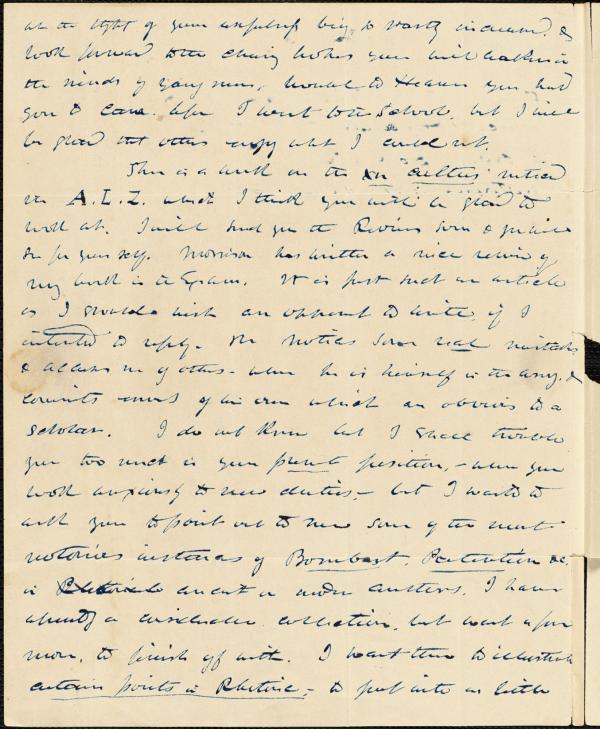 at the light of your usefulness being so vastly increased, &
look forward to the cheering hopes you will awaken in
the minds of young men. Would to Heaven you had
gone to Cam. before I went to the School, but I will
be glad that others enjoy what I could not.
There is a work on the culture noticed
in A.L.Z. which I think you will be glad to
look at. I will send you the Review soon & you will
see for yourself. Morrison has written a nice review of
my work in the Exam. It is just such an article
as I should wish an opponent to write, if I
intended to reply. He notices some real mistakes
& accuses me of others - when he is himself in the wrong, &
commits errors of his own which are obvious to a
scholar. I do not know but I shall trouble
you too much in your present position, - when you
look anxiously to new duties, - but I want to
ask you to point out to me some of the most
notorious instances of Bombast, Ostentation &c.
in ancient or modern authors. I have
already a considerable collection, but want a few
more, to finish off with. I want them to illustrate
certain points in Rhetoric, - to put into as little